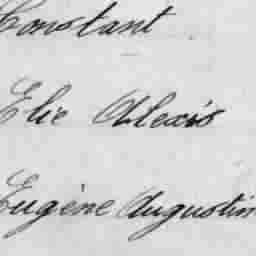 Constant
Elie Alexis
Eugène Augustin